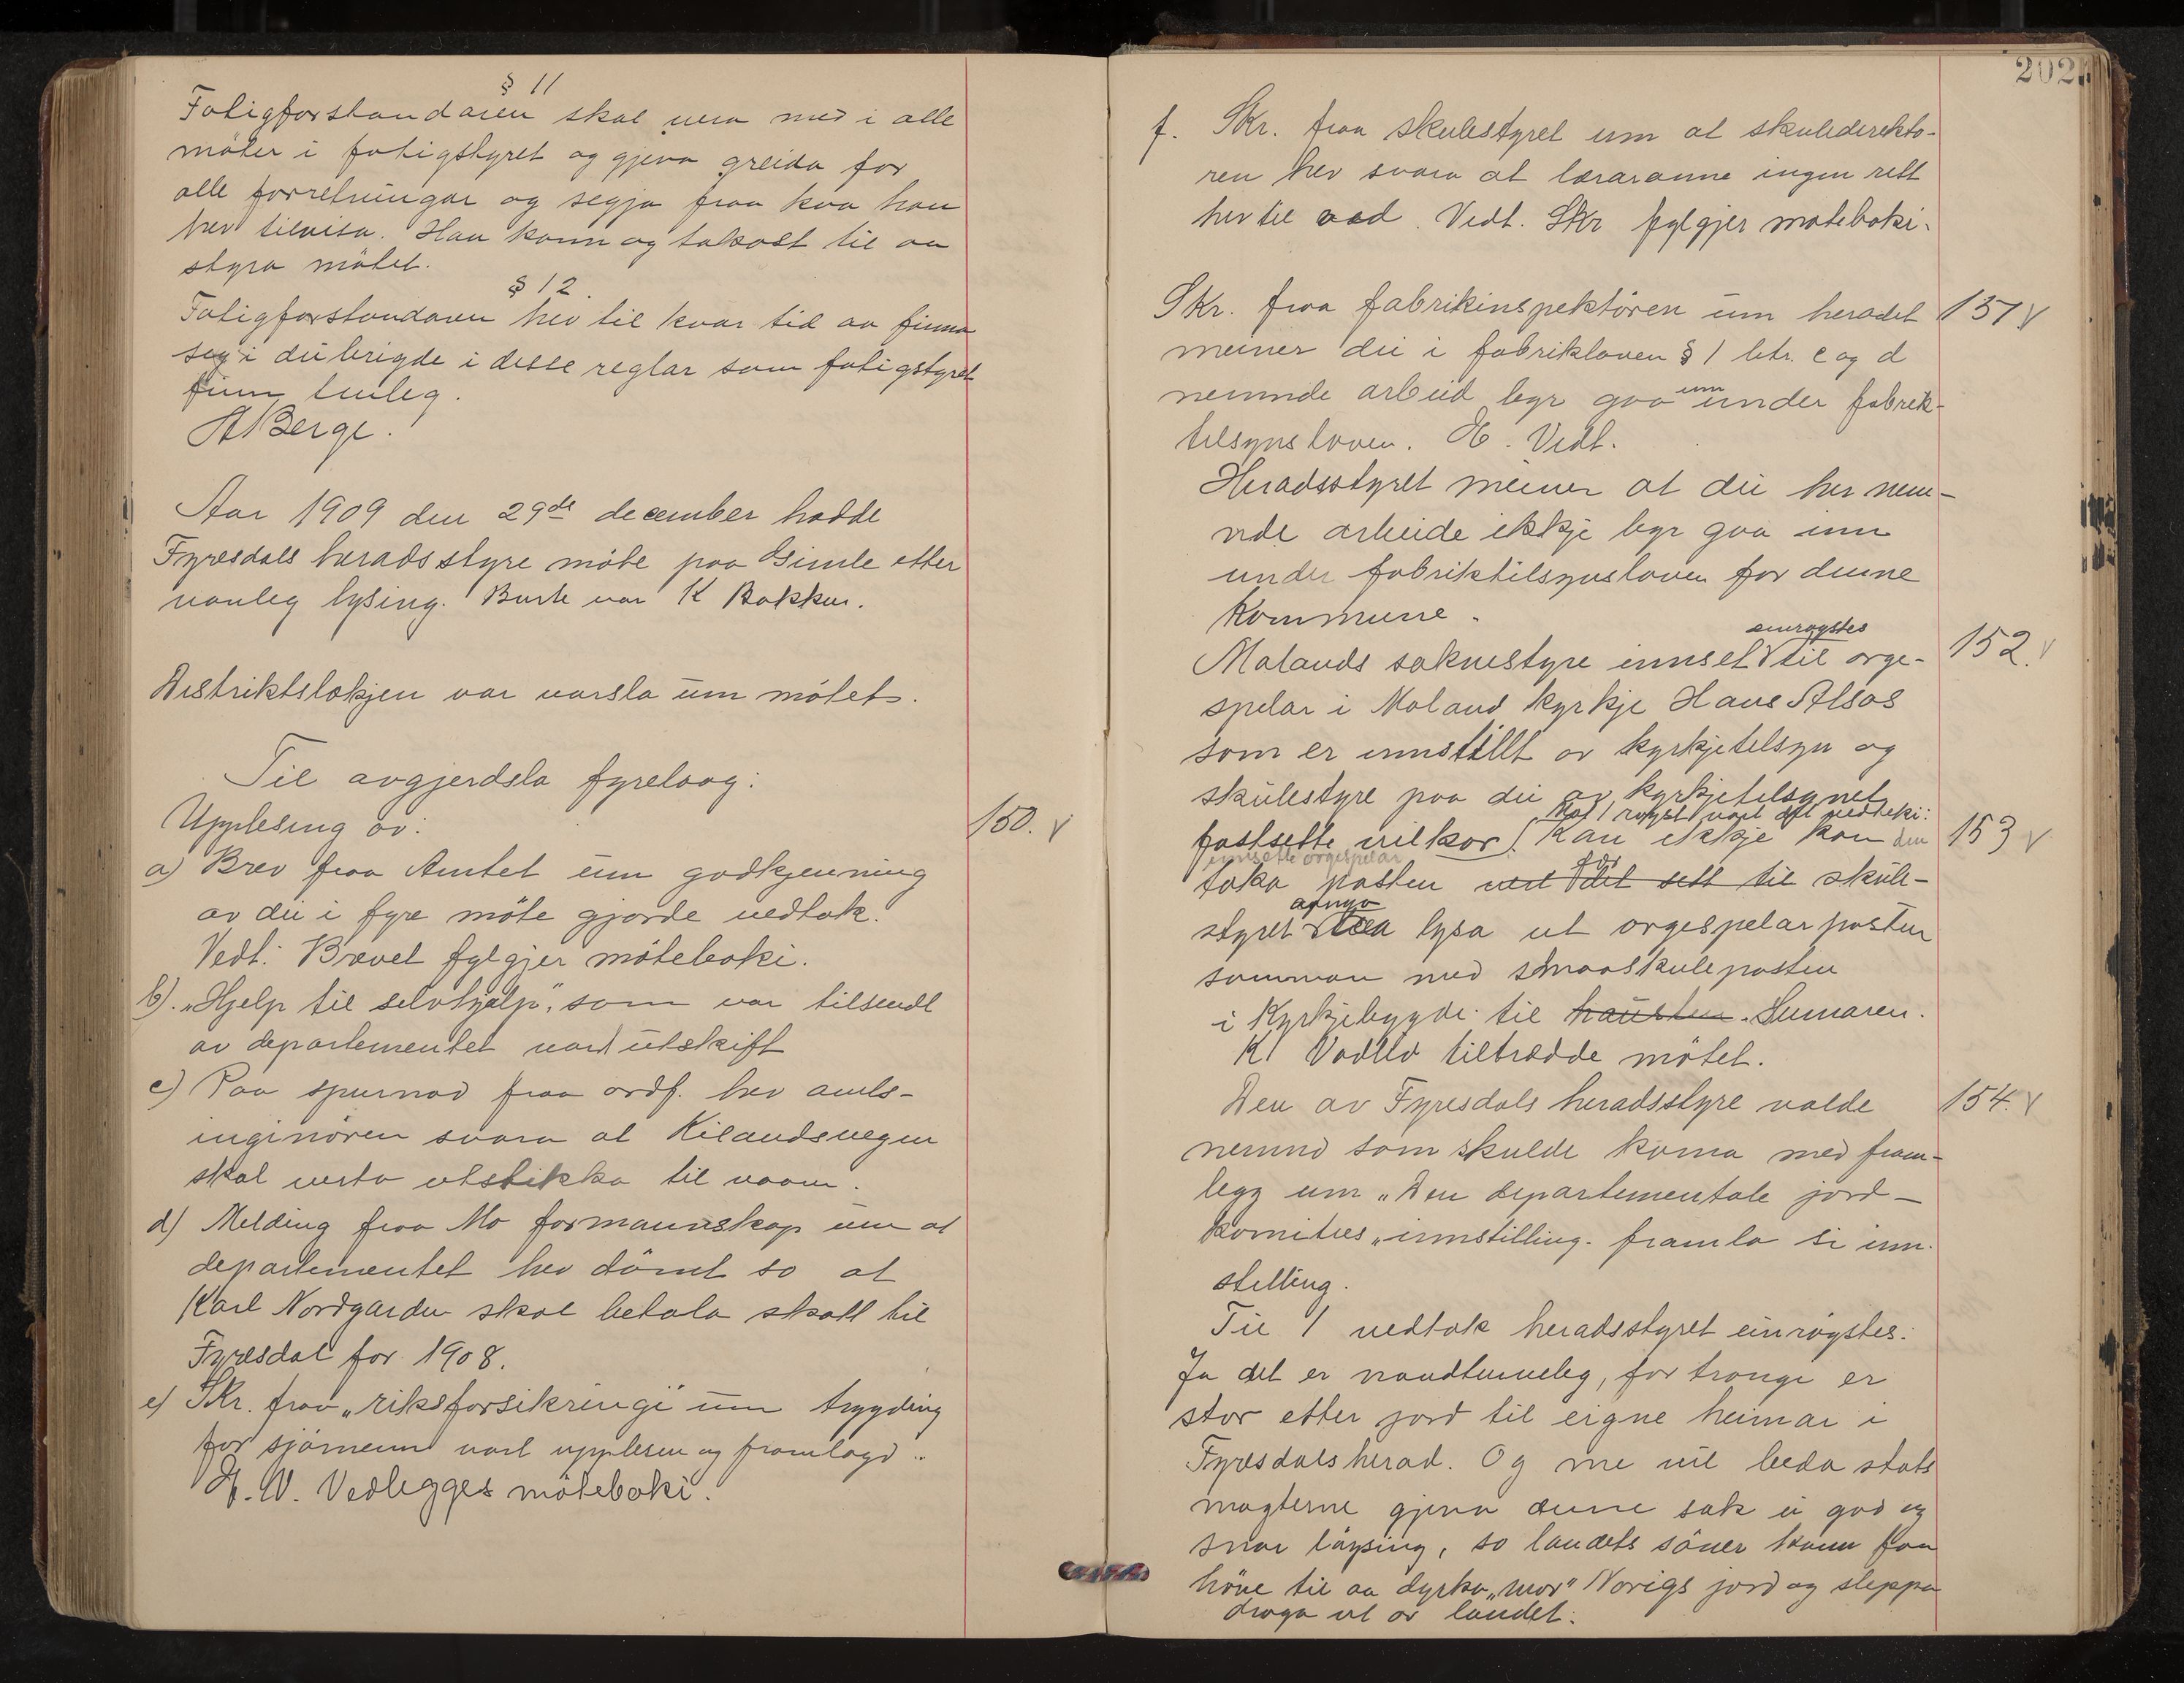 § 11
Fatigforstandaren skal vera med i alle
möter i fatigstyret og gjeva greida for
alle forretningar og segja fraa kva han
hev tilvisa. Han kann og takast til aa
styra mötet.
§ 12.
Fatigforstandaren hev til kvar tid aa finna
seg i dei brigde i desse reglar som fatigstyret
finn tenleg.
A Berge.
Aar 1909 den 29de december hadde
Fyresdals heradsstyre möte paa Gimle etter
vanleg lysing. Burte var K Bakken.
Distriktslækjen var varsla um mötet.
Til avgjerdsla fyrelaag:
Upplesing av: 150. v
a) Brev fraa Amtet um godkjenning
av dei i fyre möte gjorde vedtak.
Vedt: Brevet fylgjer möteboki.
b). „Hjelp til selvhjælp", som var tilsendt
av departementet vart utskift
c) Paa spurnad fraa ordf. hev amts-
inginören svara at Kilandsvegen
skal verta utstikka til vaaren.
d) Melding fraa Mo formannskap um at
departementet hev dömt so at
Karl Nordgarden skal betala skatt til
Fyresdal for 1908.
e) Skr. fraa „riksforsikringi" um trygding
for sjömenn vart upplesen og framlagd..
H. V. Vedlegges möteboki.
202
f. Skr. fraa skulestyret um at skuledirektö-
ren hev svara at læraranne ingen rett
hev til ved. Vedt. Skr fylgjer möteboki.
Skr. fraa fabrikinspektören um heradet 151 v
meiner dei i fabrikloven § 1 litr. c og d
nemnde arbeid bör gaa inn under fabrik-
tilsynsloven. H. Vedt.
Heradsstyret meiner at dei her nem-
nde arbeide ikkje bör gaa inn
under fabriktilsynsloven for denne
kommune.
einröystes
Molands soknestyre innset til orge- 152. v
spelar i Moland kyrkje Hans Alsos
som er innstillt av kyrkjetilsyn og
skulestyre paa dei av kyrkjetilsynet
Mot 1 röyst vart det vedteki:
fastsette vilkor. Kan ikkje han den 153 v
innsette orgespelar
taka posten ved det sett til skule-
afnyo
styret lysa ut orgespelar posten
samman med smaaskuleposten
i Kyrkjebygdi til hausten. Sumaren.
K Vadlid tiltrædde mötet.
Den av Fyresdals heradsstyre valde 154. v
nemnd som skulde koma med fram-
legg um „Den departementale jord-
komites" innstilling. framla si inn-
stelling.
Til 1 vedtok heradsstyret einröystes:
Ja det er naudturveleg, for trongi er
stor etter jord til eigne heimar i
Fyresdals herad. Og me vil beda stats
magterne gjeva denne sak ei god og
snar löysing, so landets söner kann faa
höve til aa dyrka „mor" Norigs jord og sleppa
draga ut av landet.